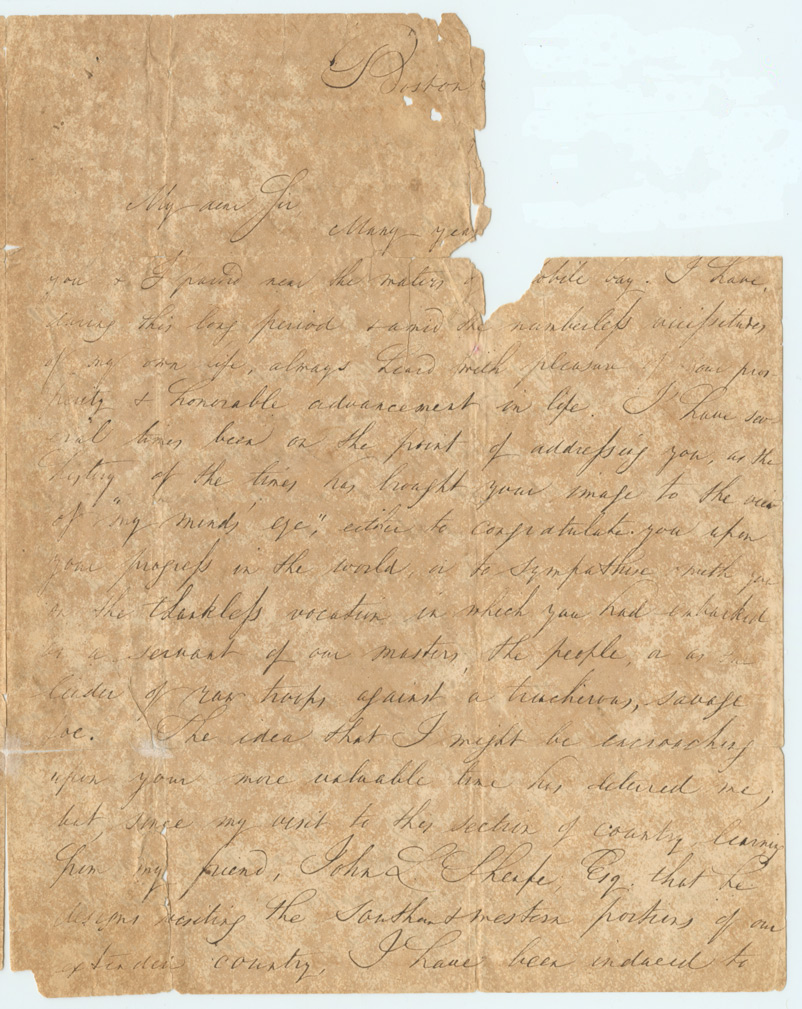 Boston
My dear Sir
Many year
you & I parted near the waters of obile bay. I have,
during this long period & amid the numberless vicissitudes
of my own life, always heard with pleasure of your pros
perity & honorable advancement in life. I have sev
eral times been on the point of addressing you, as the
history of the times has brought your image to the view
of "my minds' eye", either to congratulate you upon
your progress in the world, or to sympathise with you
in the thankless vocation in which you had embarked
as a servant of our masters, the people, or as
leader of raw troops against a treacherous, savage
foe. The idea that I might be encroaching
upon your more valuable time has deterred me;
but, since my visit to this section of country, learning
from my friend, John L Sheafe, Esq. that he
designs visiting the Southern & western portions of our
extended country, I have been induced to